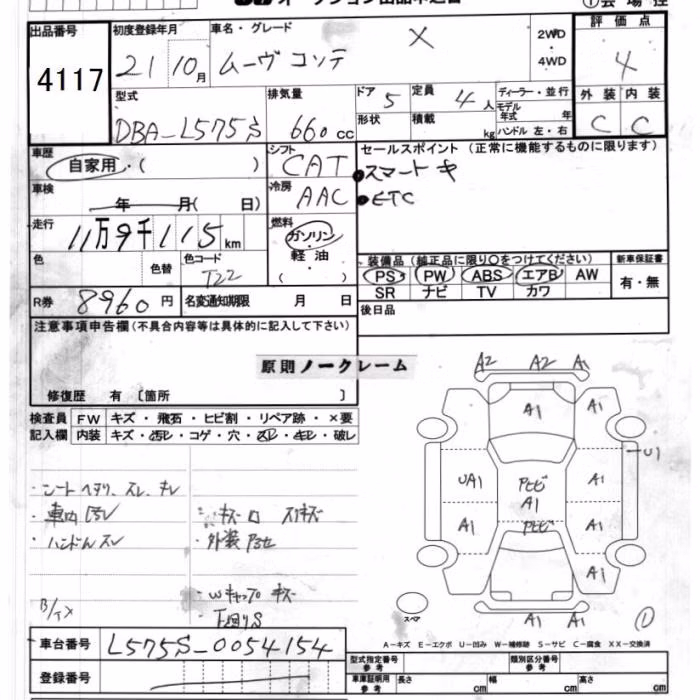 出品番号 初度登録年月 車名・グレード 2WD 評価点
4117 21 10月 ムーヴ コンテ X ・ 4
4WD
型式 排気量 ドア 5 定員 4人 ディーラー・並行 外装 内装
DBA-L575S 660cc 形状 積載 kg モデル年式 年 C C
ハンドル 左・右
車歴 シフト セールスポイント (正常に機能するものに限ります)
自家用・( ) CAT ●スマートキ
車検 冷房 ●ETC
年 月( 日) AAC
走行 燃料
11万9千115km ガソリン・
色 色替 色コード 軽油・ 装備品 (純正品に限り○をつけてください) 新車保証書
T22 ( ) PS PW ABS エアB AW 有・無
R券 8960円 名変通知期限 月 日 SR ナビ TV カワ
後日品
注意事項申告欄(不具合内容等は具体的に記入して下さい)
原則ノークレーム
修復歴 有〔箇所 〕
検査員 FW キズ・飛石・ヒビ割・リペア跡・×要
記入欄 内装 キズ・汚レ・コゲ・穴・スレ・切レ・破レ
・シート ヘタリ、スレ、キレ
・車内 汚レ
・ハンドルスレ
・外装
・Wキャップ キズ
・下回りS
A2 A2 A1
A1 A1
U1
UA1 Pヒビ A1
A1
A1 Pヒビ A1
A1
A1 A1
スペア
A-キズ E-エクボ U-凹み W-補修跡 S-サビ C-腐食 XX-交換済
車台番号 L575S-0054154
型式指定番号 参考 類別区分番号 参考
登録番号 車庫証明用 参考 長さ cm 幅 cm 高さ cm